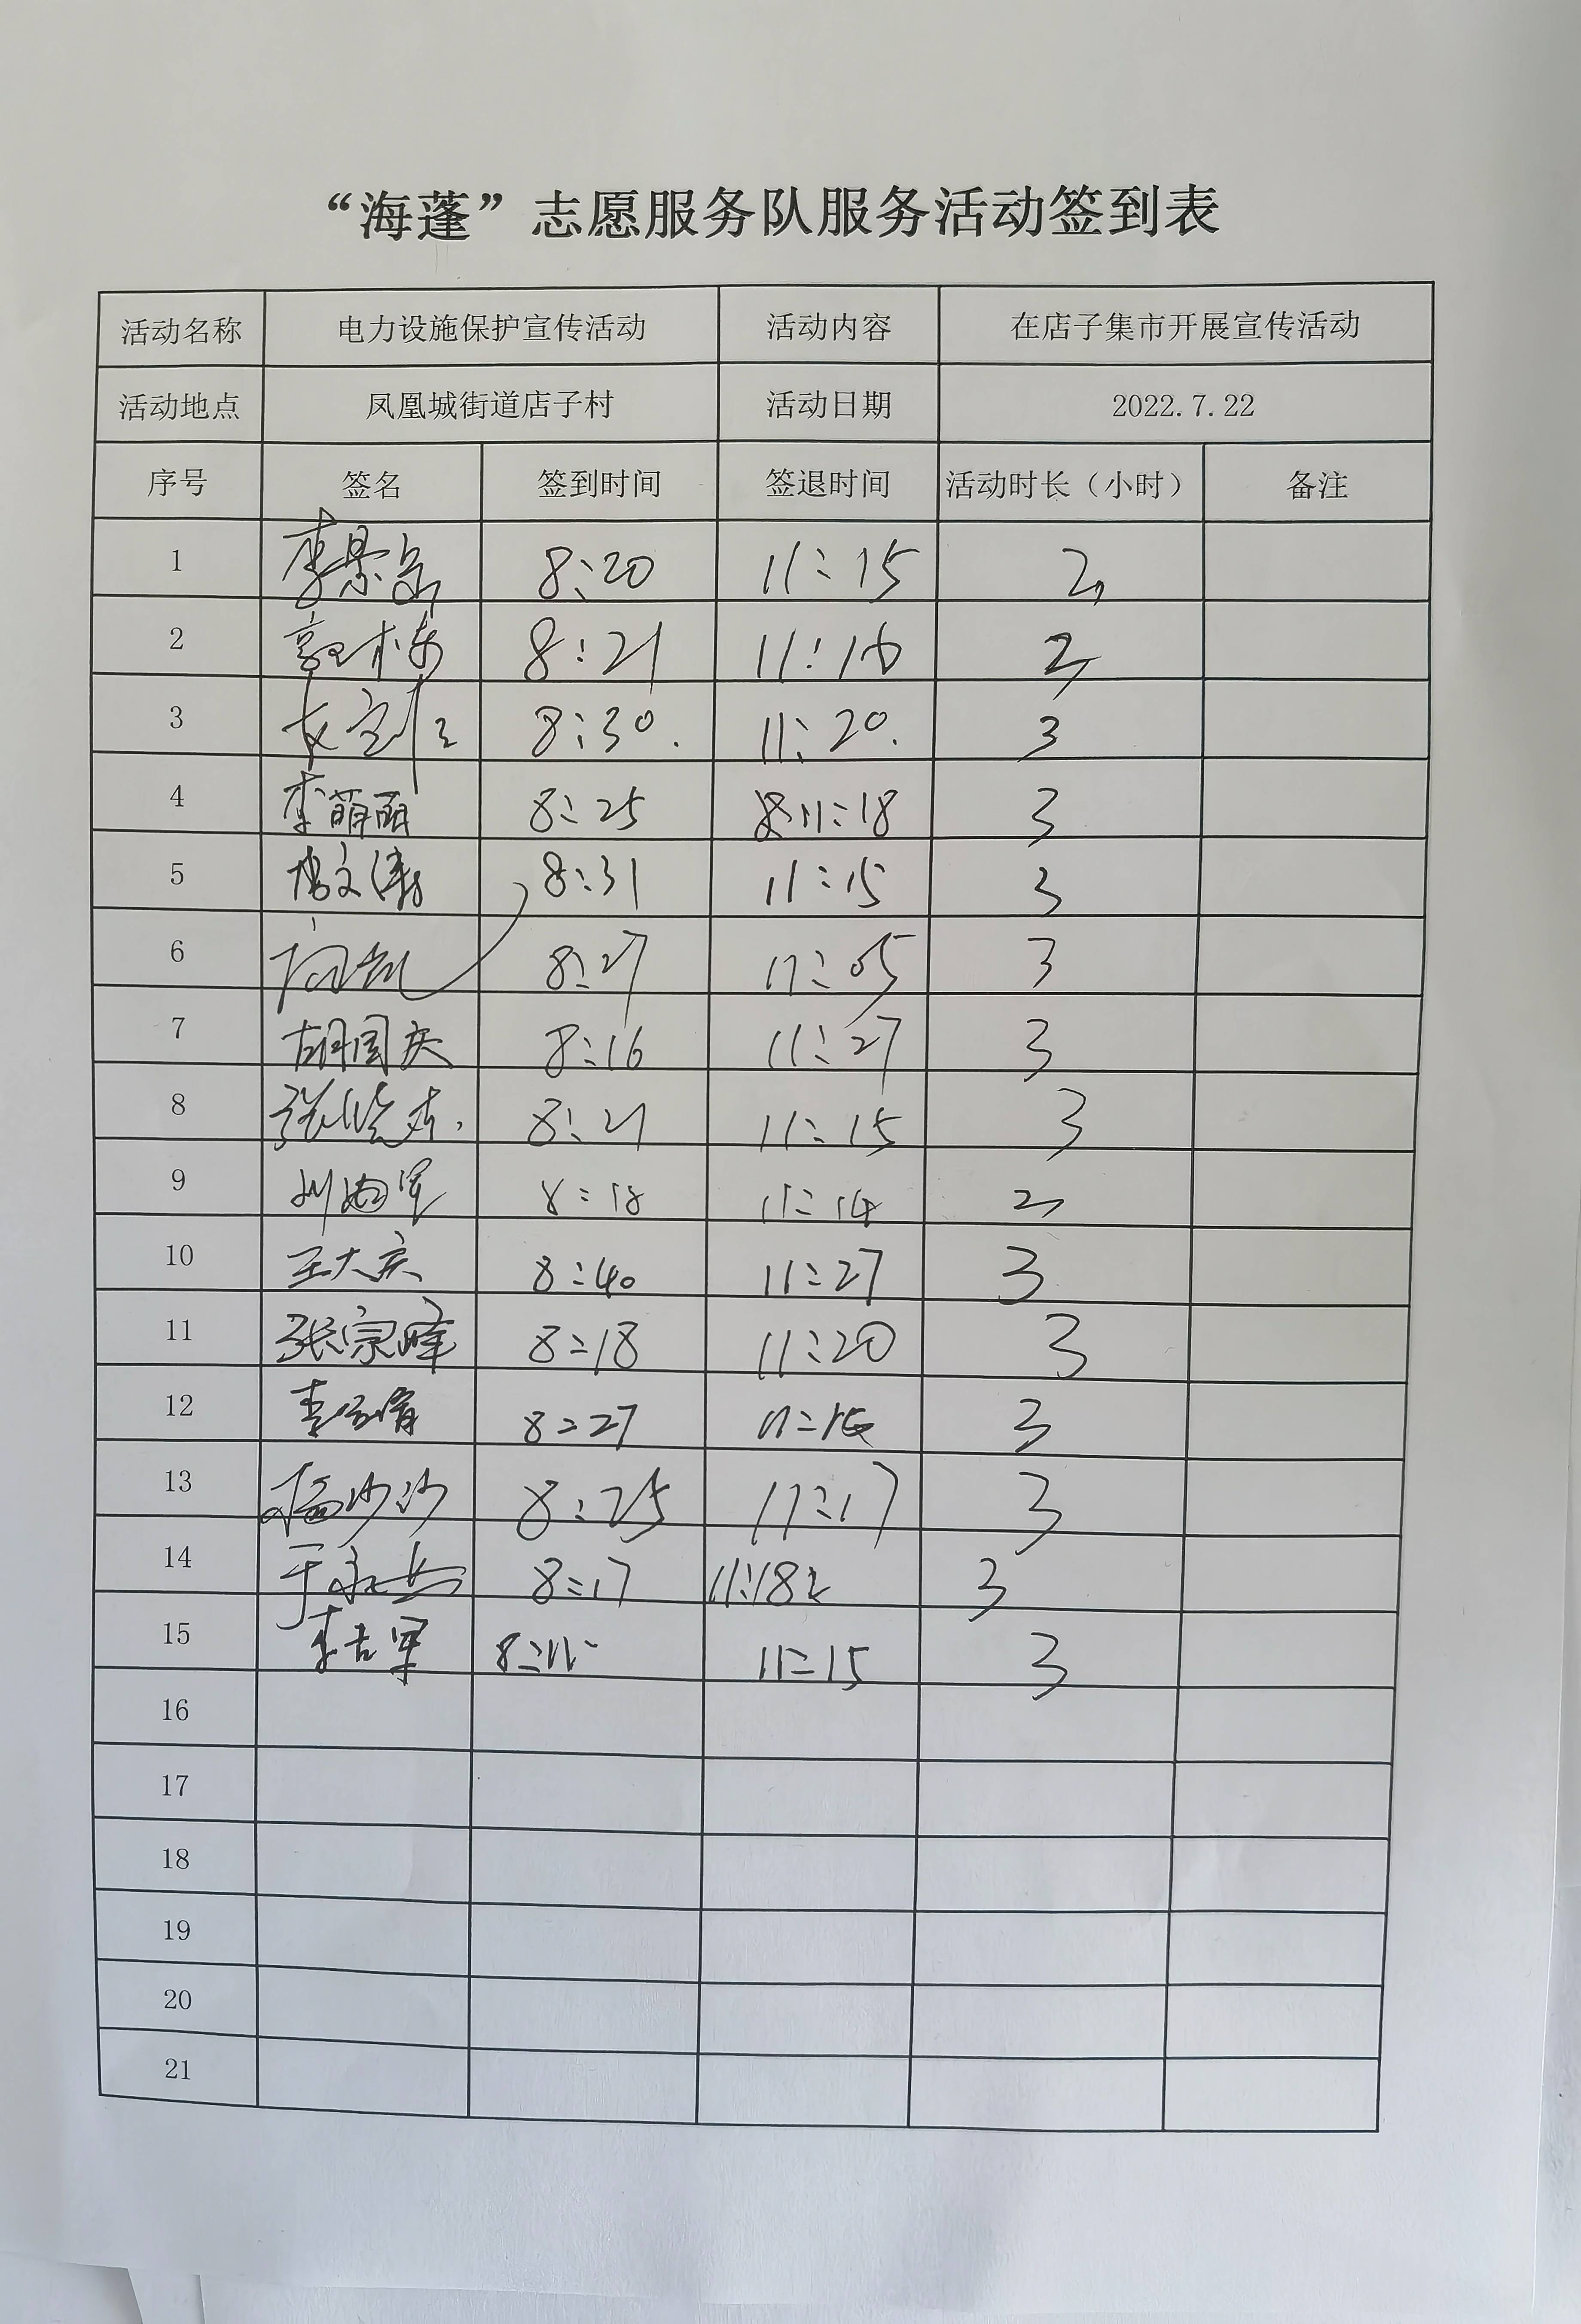 “海蓬”志愿服务队服务活动签到表
活动名称 电力设施保护宣传活动 活动内容 在店子集市开展宣传活动
活动地点 凤凰城街道店子村 活动日期 2022.7.22
序号 签名 签到时间 签退时间 活动时长（小时） 备注
1 李景岳 8:20 11:15 2
2 郭栋 8:21 11:16 2
3 8:30. 11:20. 3
4 李萌丽 8:25 11:18 3
5 杨文涛 8:31 11:15 3
6 8:27 11:05 3
7 胡国庆 8:16 11:27 3
8 张晓杰 8:21 11:15 3
9 刘海军 8:18 11:14 2
10 王大庆 8:40 11:27 3
11 张宗峰 8:18 11:20 3
12 8:27 3
13 杨沙沙 8:25 11:17 3
14 8:17 11:18 3
15 李吉军 11:15 3
16
17
18
19
20
21